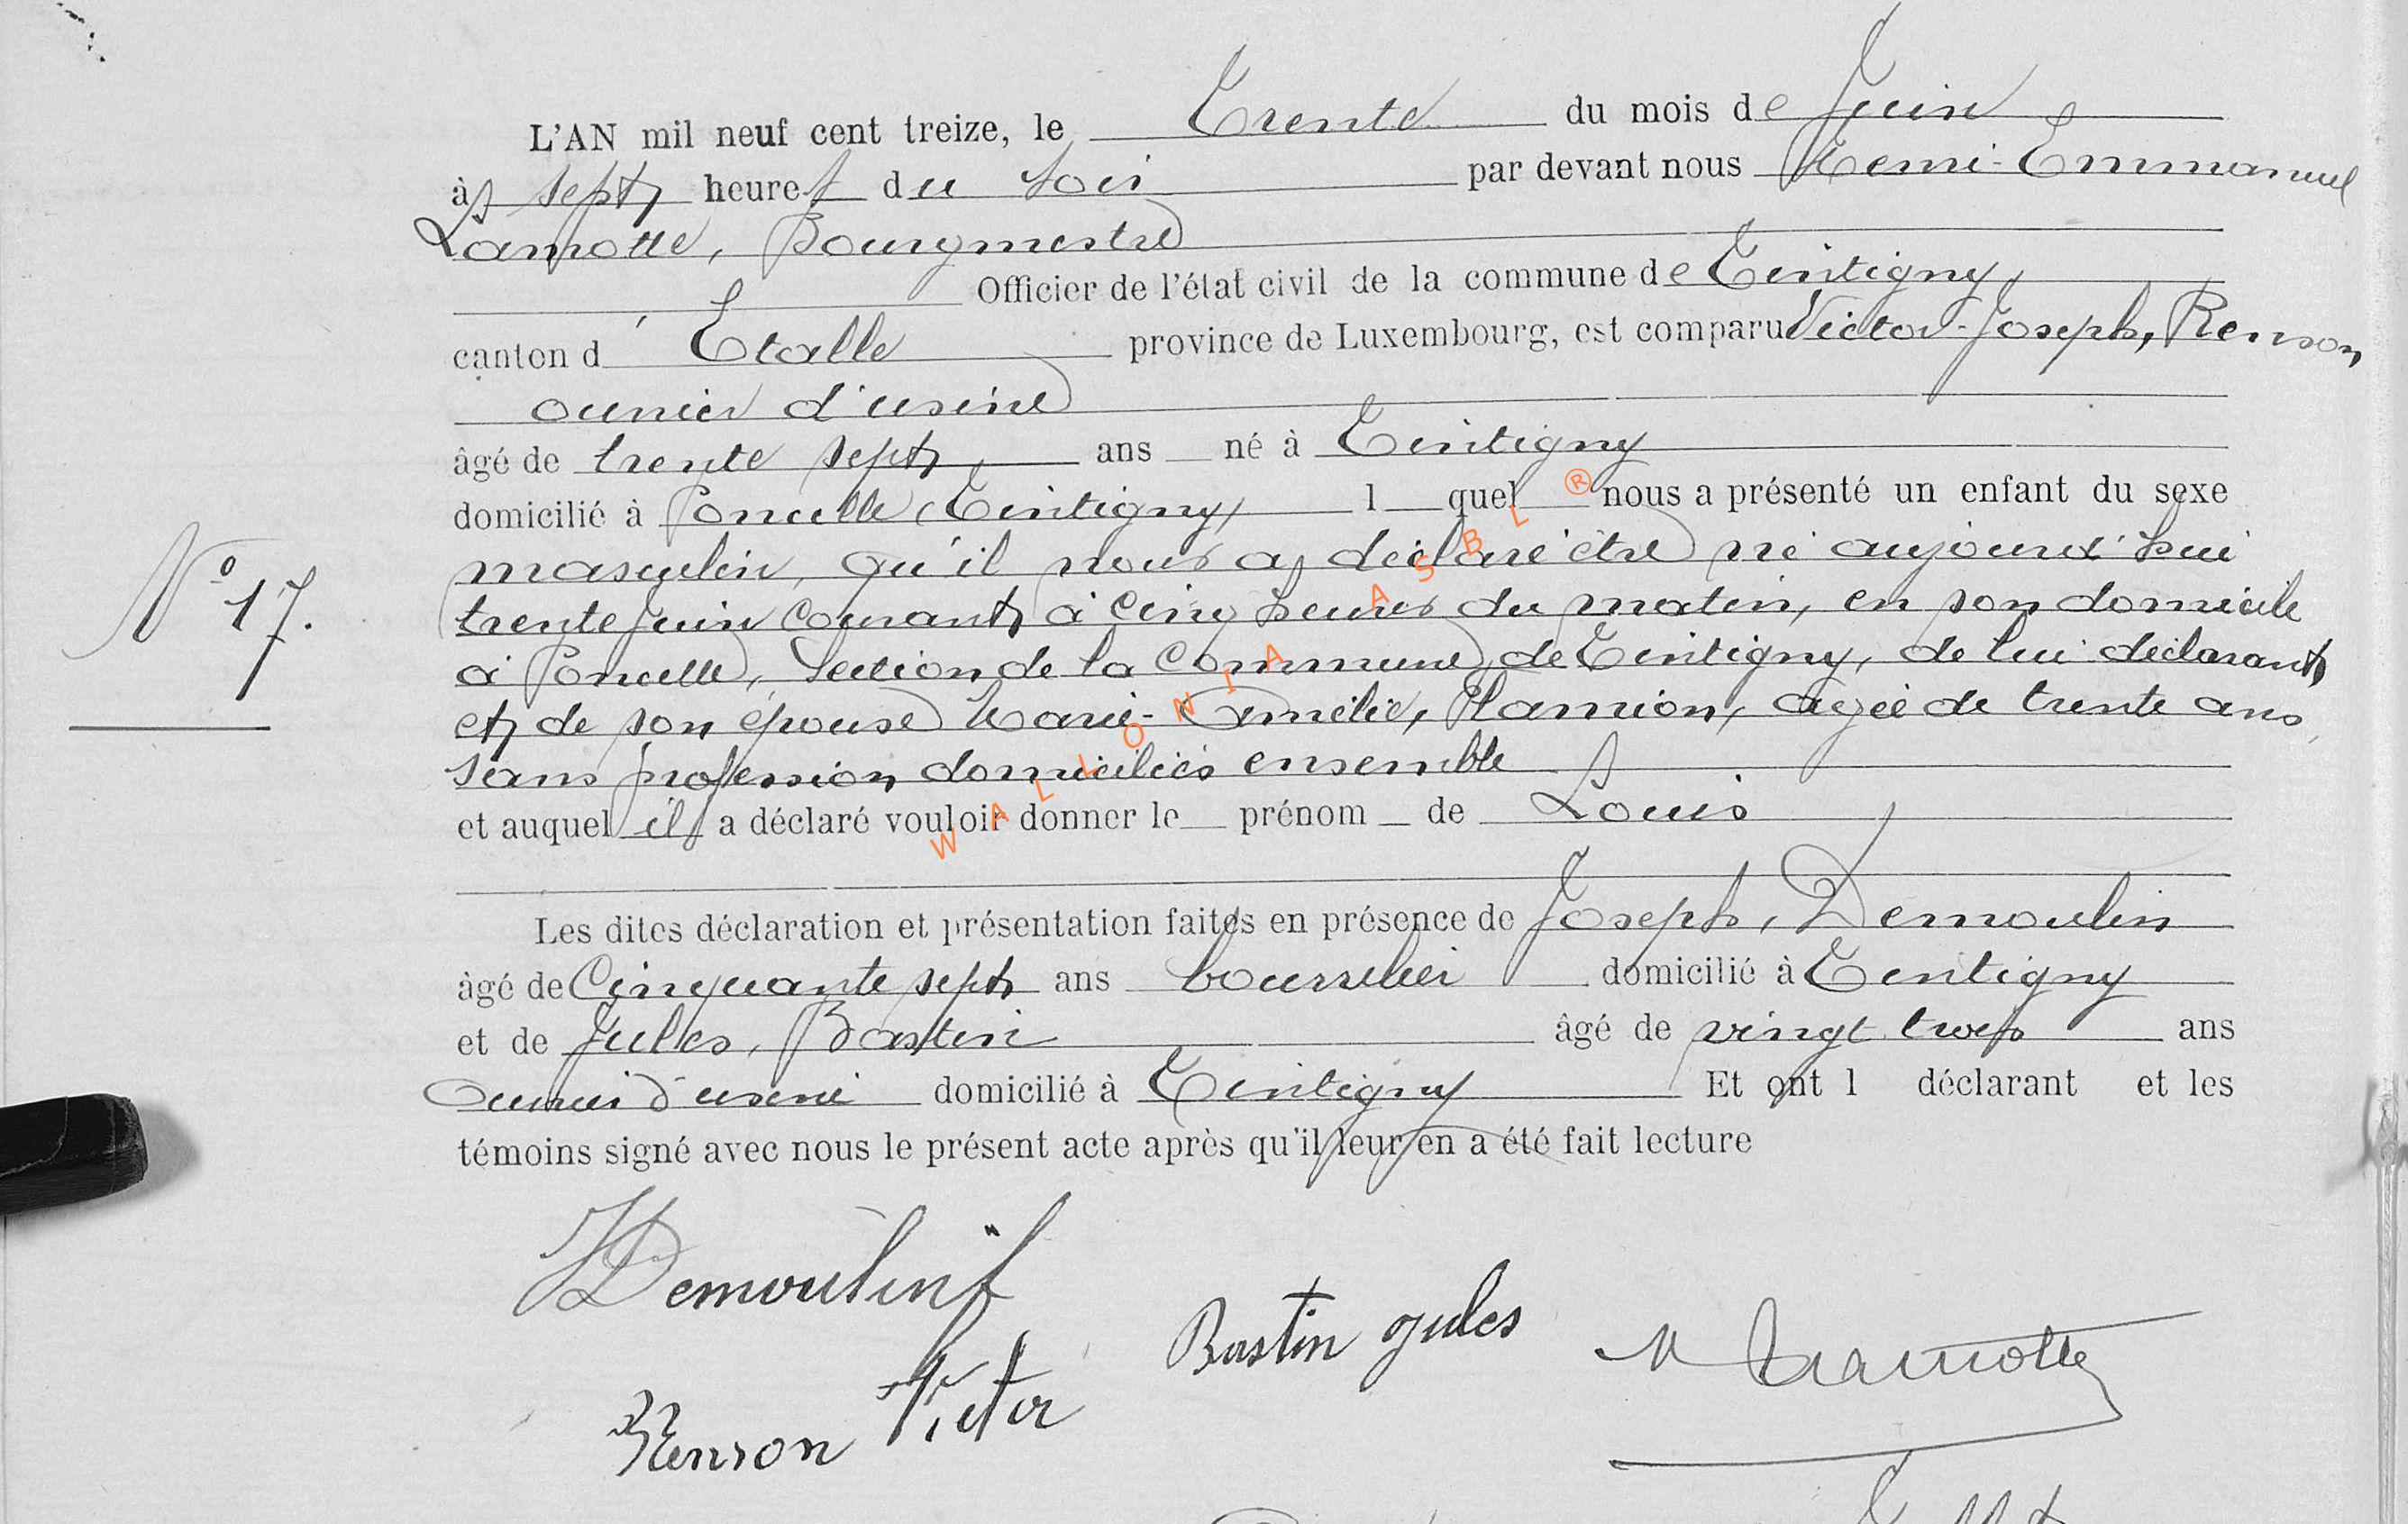 L'AN mil neuf cent treize, le Trente du mois de Juin
à sept heures du soir par devant nous Remi-Emmanuel
Lamotte, Bourgmestre
Officier de l'état civil de la commune de Tintigny,
canton d'Etalle province de Luxembourg, est comparu Victor-Joseph, Renson
ouvrier d'usine
âgé de trente sept ans né à Tintigny
domicilié à Poncelle (Tintigny) l quel nous a présenté un enfant du sexe
masculin, qu'il nous a déclaré être né aujourd'hui
N° 17.
trente Juin courant à cinq heures du matin, en son domicile
à Poncelle, Section de la Commune de Tintigny, de lui déclarant
et de son épouse Marie-Amélie, Planion, agée de trente ans,
sans profession domiciliés ensemble
et auquel il a déclaré vouloir donner le prénom de Louis
Les dites déclaration et présentation faites en présence de Joseph, Demoulin
âgé de Cinquante sept ans bourrelier domicilié à Tintigny
et de Jules, Bastin âgé de vingt trois ans
Ouvrier d'usine domicilié à Tintigny Et ont l déclarant et les
témoins signé avec nous le présent acte après qu'il leur en a été fait lecture
Demoulin
Bastin Jules
Lamotte
Renson Victor
WALLONIA ASBL ®